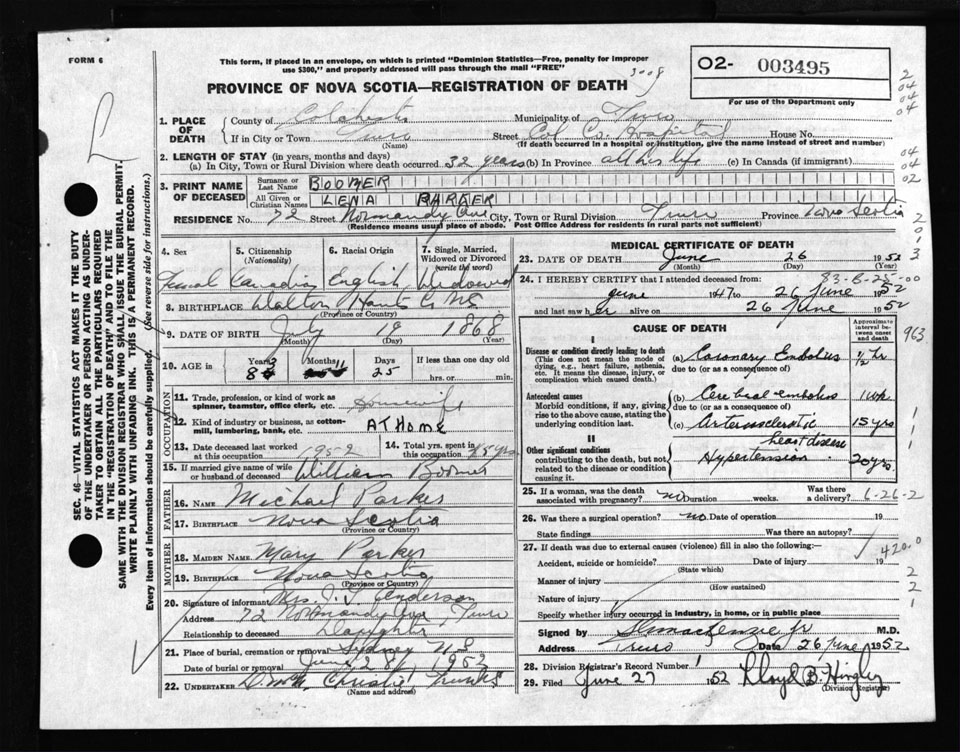 FORM 6
This form, if placed in an envelope, on which is printed "Dominion Statistics—Free, penalty for improper
use $300," and properly addressed will pass through the mail "FREE"
3008
O2- 003495
For use of the Department only
PROVINCE OF NOVA SCOTIA—REGISTRATION OF DEATH
2
04
04
04
1. PLACE OF DEATH
County of Colchester
Municipality of Truro
If in City or Town Truro
(Name)
Street Col Co. Hospital House No.
(If death occurred in a hospital or institution, give the name instead of street and number)
2. LENGTH OF STAY (in years, months and days)
(a) In City, Town or Rural Division where death occurred 32 years (b) In Province all his life (c) In Canada (if immigrant)
04
04
02
3. PRINT NAME OF DECEASED
Surname or Last Name BOOMER
All Given or Christian Names LENA BARKER
RESIDENCE No. 72 Street Normandy Ave City, Town or Rural Division Truro Province Nova Scotia
(Residence means usual place of abode. Post Office Address for residents in rural parts not sufficient)
2
0
1
3
4. Sex
5. Citizenship (Nationality)
6. Racial Origin
7. Single, Married, Widowed or Divorced (write the word)
Canadian English Widowed
8. BIRTHPLACE Walton Hants Co NS
(Province or Country)
9. DATE OF BIRTH July 19 1868
(Month) (Day) (Year)
10. AGE in Years 83 Months Days 25
If less than one day
hrs. or min.
OCCUPATION
11. Trade, profession, or kind of work as spinner, teamster, office clerk, etc. Housewife
12. Kind of industry or business, as cotton-mill, lumbering, bank, etc. AT HOME
13. Date deceased last worked at this occupation 1952
14. Total yrs. spent in this occupation yrs
15. If married give name of wife or husband of deceased William Boomer
FATHER
16. Name Michael Parker
17. BIRTHPLACE Nova Scotia
(Province or Country)
MOTHER
18. MAIDEN NAME Mary Parker
19. BIRTHPLACE Nova Scotia
(Province or Country)
20. Signature of informant Mrs. Anderson
Address 72 Normandy Ave Truro
Relationship to deceased Daughter
21. Place of burial, cremation or removal Sydney N.S
Date of burial or removal June 28, 1952
22. UNDERTAKER Christie Truro
(Name and address)
MEDICAL CERTIFICATE OF DEATH
23. DATE OF DEATH June 26 1952
(Month) (Day) (Year)
83-8-25-00
24. I HEREBY CERTIFY that I attended deceased from:
June 1947 to 26 June 1952
and last saw her alive on 26 June 1952
CAUSE OF DEATH
Approximate interval between onset and death
963
I
Disease or condition directly leading to death
(This does not mean the mode of dying, e.g., heart failure, asthenia, etc. It means the disease, injury, or complication which caused death.)
(a) Coronary Embolus 1/2 hr
due to (or as a consequence of)
Antecedent causes
Morbid conditions, if any, giving rise to the above cause, stating the underlying condition last.
(b) Cerebral embolus 1 wk
due to (or as a consequence of)
(c) Arteriosclerotic heart disease 15 yrs
II
Other significant conditions
contributing to the death, but not related to the disease or condition causing it.
Hypertension 20 yrs.
1
1
1
25. If a woman, was the death associated with pregnancy? no Duration weeks. Was there a delivery? 6-26-2
26. Was there a surgical operation? no. Date of operation 19
State findings Was there an autopsy?
27. If death was due to external causes (violence) fill in also the following:—
420.0
Accident, suicide or homicide? Date of injury 19
(State which)
Manner of injury
(How sustained)
Nature of injury
Specify whether injury occurred in industry, in home, or in public place
2
2
1
Signed by M.D.
Address Truro Date 26 June 1952
28. Division Registrar's Record Number
29. Filed June 27 1952 Lloyd B. Hingley
(Division Registrar)
SEC. 46—VITAL STATISTICS ACT MAKES IT THE DUTY
OF THE UNDERTAKER OR PERSON ACTING AS UNDER-
TAKER TO OBTAIN ALL THE PARTICULARS REQUIRED
IN THE "REGISTRATION OF DEATH" AND TO FILE THE
SAME WITH THE DIVISION REGISTRAR WHO SHALL ISSUE THE BURIAL PERMIT.
WRITE PLAINLY WITH UNFADING INK. THIS IS A PERMANENT RECORD.
Every item of Information should be carefully supplied. (See reverse side for instructions.)